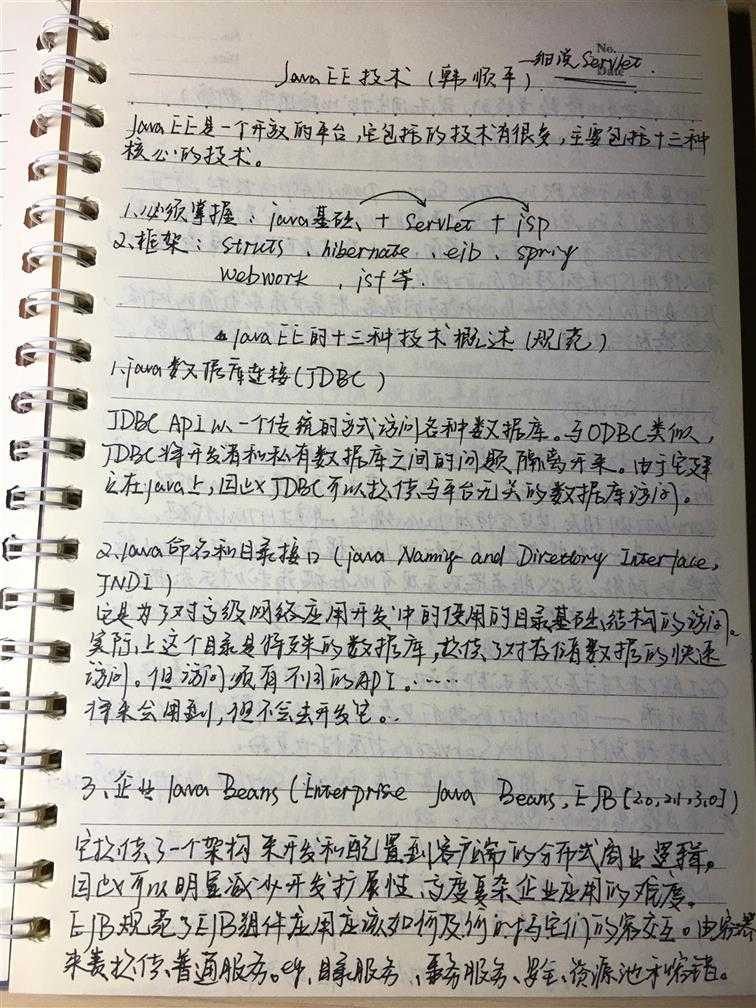 No.
Date
Java EE 技术 (韩顺平) —细说Servlet.
Java EE是一个开放的平台,它包括的技术有很多,主要包括十三种
核心的技术。
1.必须掌握: java基础 + Servlet + jsp
2.框架: structs、hibernate、ejb、spring
webwork、jsf等.
Java EE的十三种技术概述(规范)
1.java数据库连接(JDBC)
JDBC API以一个传统的方式访问各种数据库。与ODBC类似,
JDBC将开发者和私有数据库之间的问题隔离开来。由于它建
立在java上,因此JDBC可以提供与平台无关的数据库访问。
2.Java命名和目录接口(java Naming and Directory Interface,
JNDI)
它是为了对高级网络应用开发中的使用的目录基础结构的访问。
实际上这个目录是特殊的数据库,提供了对存储数据的快速
访问。但访问须有不同的API。……
将来会用到,但不会去开发它。
3、企业Java Beans(Enterprise Java Beans, EJB[2.0,2.1,3.0])
它提供了一个架构来开发和配置到客户端的分布式商业逻辑。
因此可以明显减少开发扩展性、高度复杂企业应用的难度。
EJB规范了EJB组件应用应该如何及何时与它们的容交互。由容器
来提供普通服务。eg、目录服务、事务服务、安全、资源池和容错。